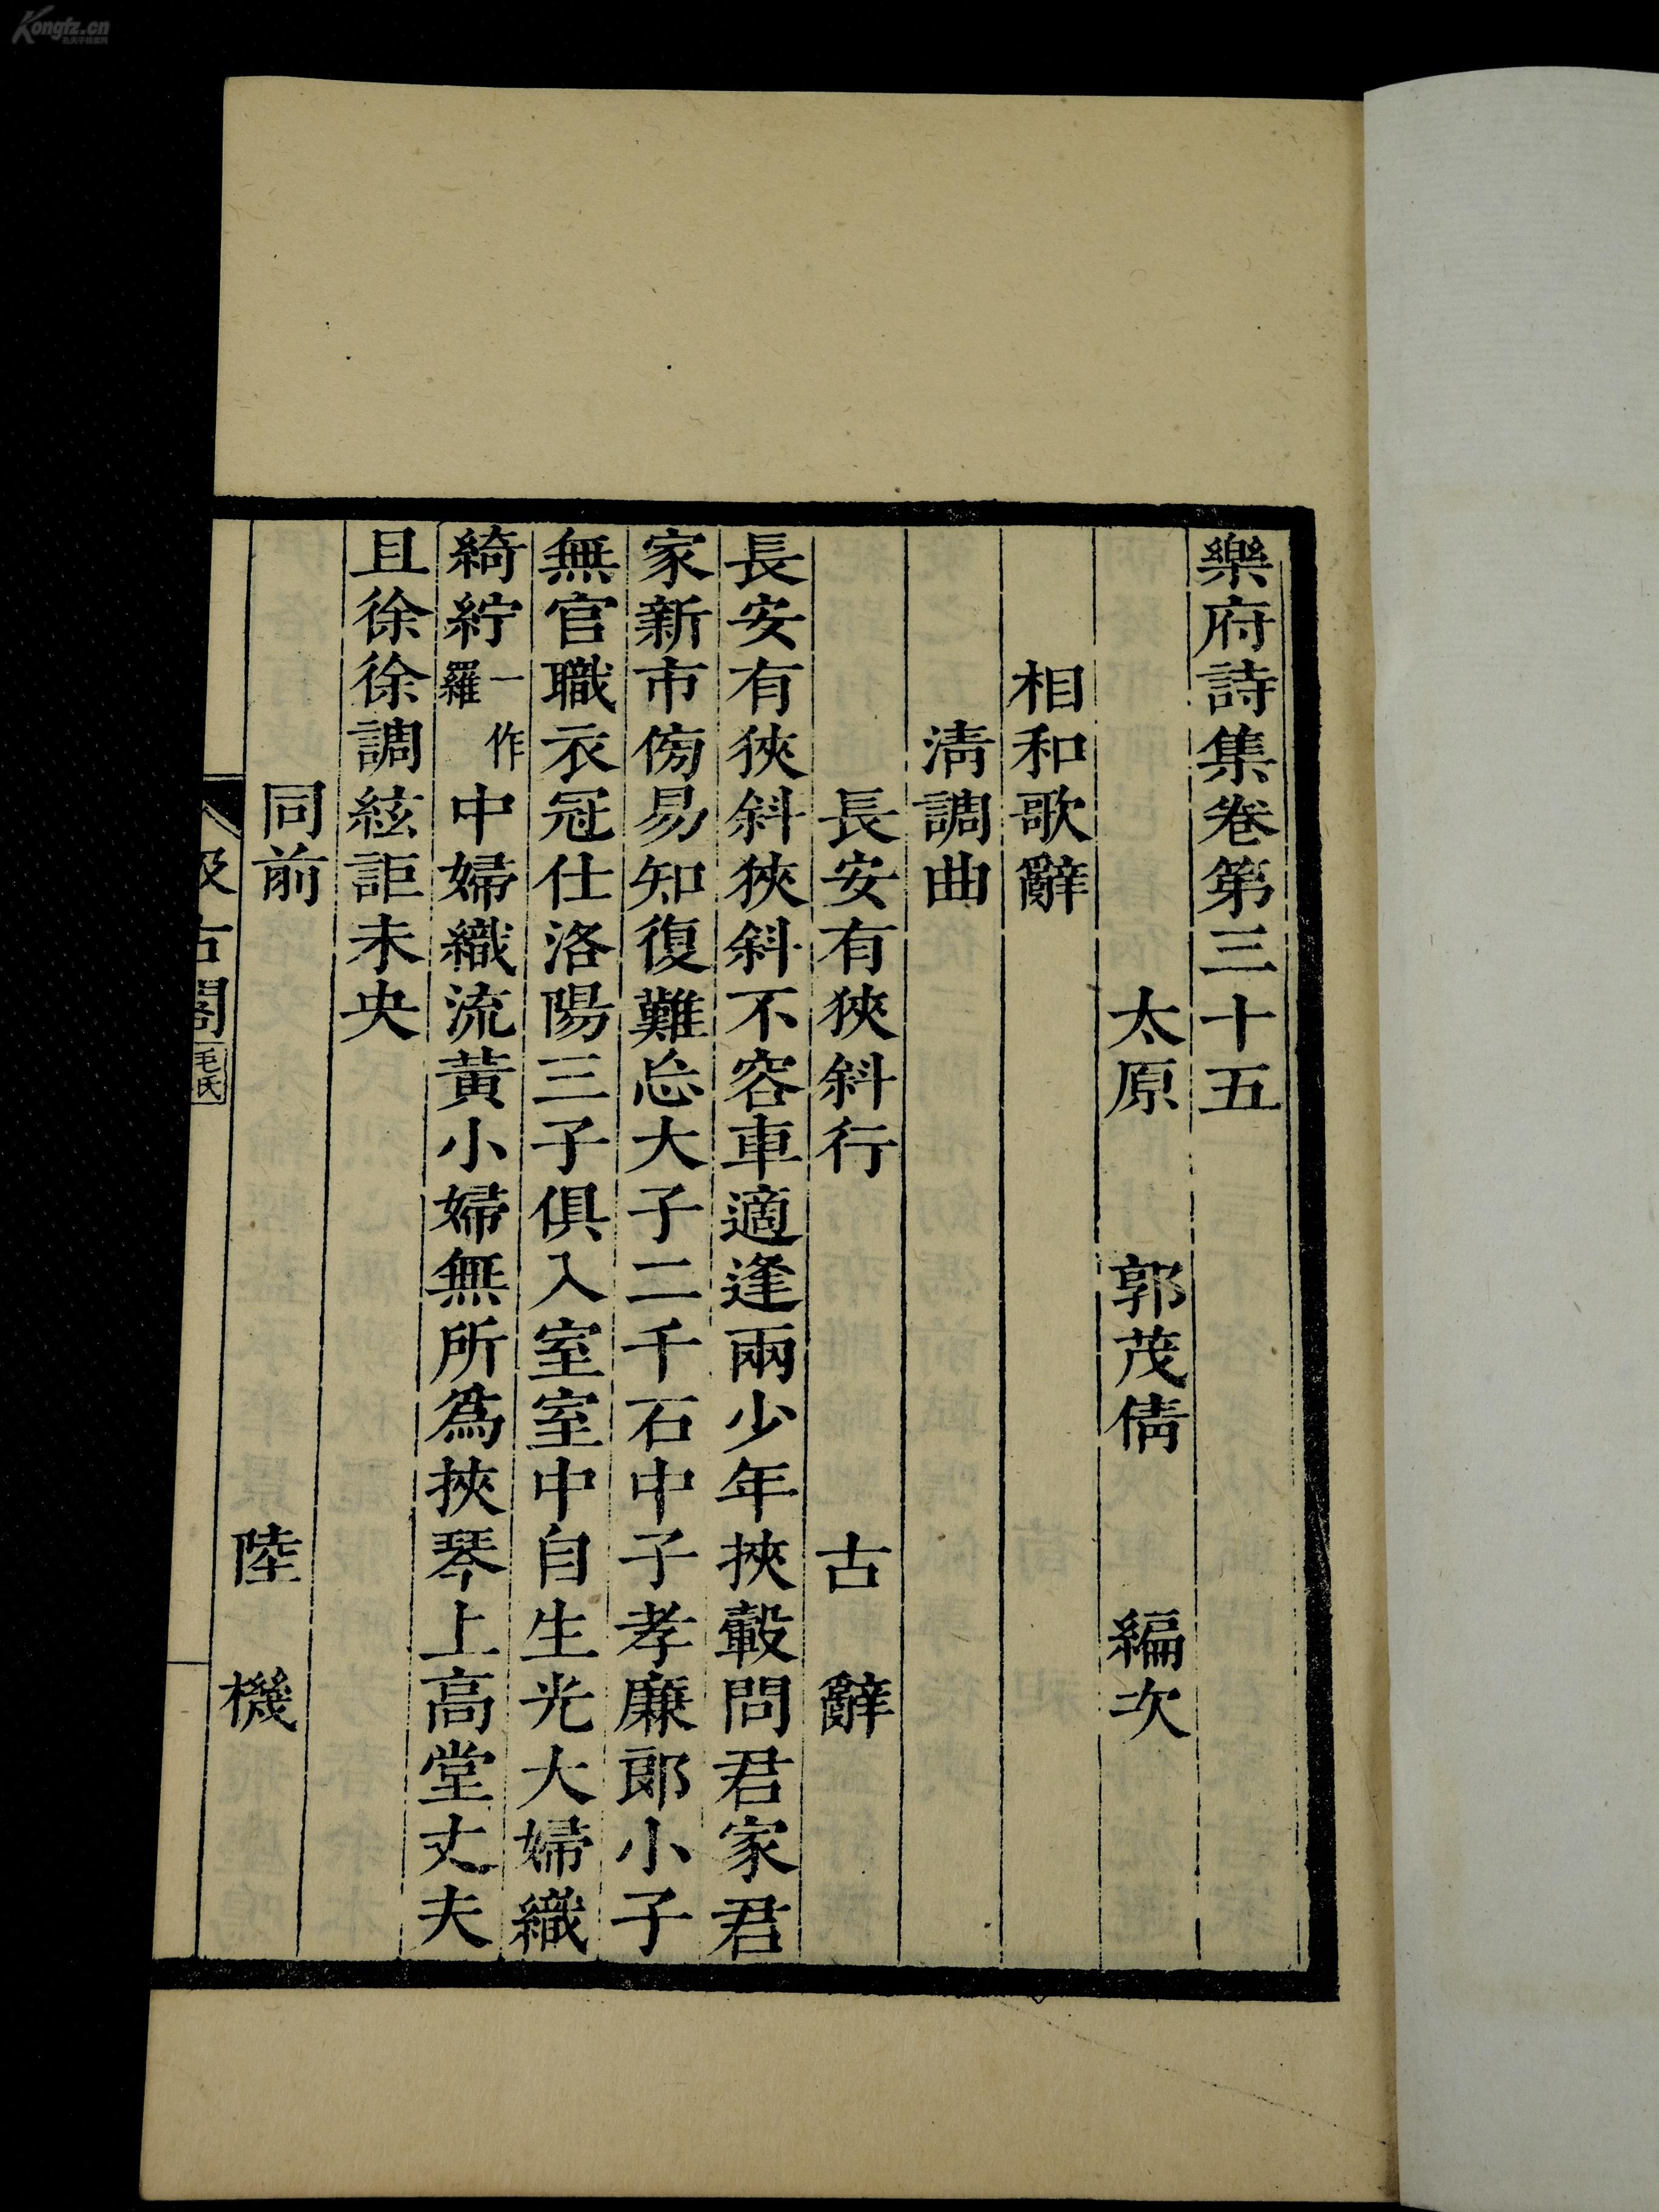 樂府詩集卷第三十五
太原 郭茂倩 編次
相和歌辭
清調曲
長安有狹斜行 古辭
長安有狹斜狹斜不容車適逢兩少年挾轂問君家君
家新市傍易知復難忘大子二千石中子孝廉郎小子
無官職衣冠仕洛陽三子俱入室室中自生光大婦織
綺紵一作羅中婦織流黃小婦無所爲挾琴上高堂丈夫
且徐徐調絃詎未央
同前 陸機
汲古閣
毛氏
Kongfz.cn